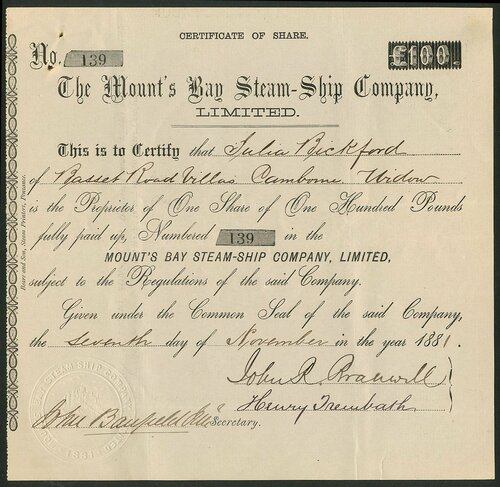 CERTIFICATE OF SHARE.
No. 139
£100.
The Mount's Bay Steam-Ship Company,
LIMITED.
This is to Certify that Julia Bickford
of Basset Road Villas Camborne Widow
is the Proprietor of One Share of One Hundred Pounds
fully paid up, Numbered 139 in the
MOUNT'S BAY STEAM-SHIP COMPANY, LIMITED,
subject to the Regulations of the said Company.
Given under the Common Seal of the said Company,
the seventh day of November in the year 1881.
John R. Branwell
Henry Trembath
John Banfield
Secretary.
1881
Steam Printers, Penzance.